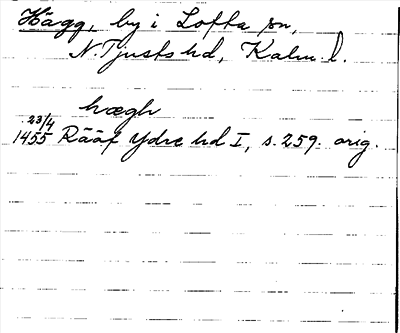 Hägg, by i Lofta sn,
N. Tjusts hd, Kalm. l.
hægh
23/4
1455 Rääf Ydre hd I, s. 259. orig.